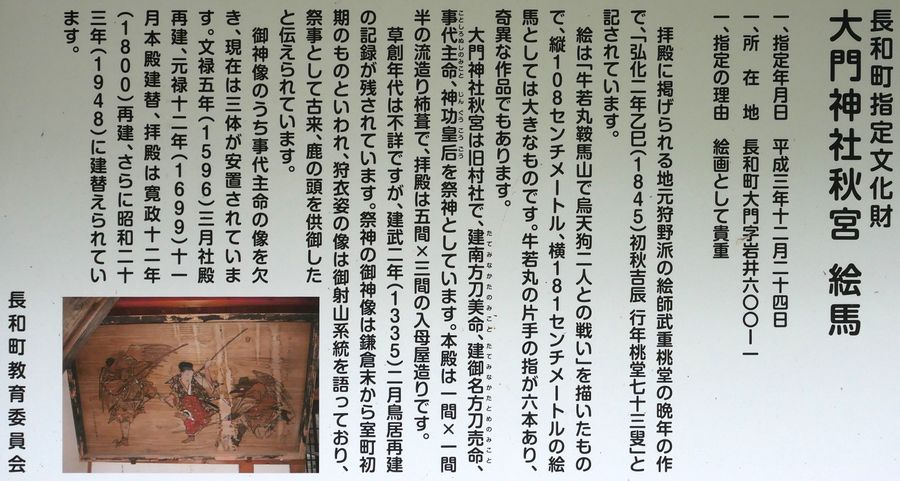 長和町指定文化財
大門神社秋宮 絵馬
一、指定年月日 平成三年十二月二十四日
一、所在地 長和町大門字岩井六〇〇ー一
一、指定の理由 絵画として貴重
拝殿に掲げられる地元狩野派の絵師武重桃堂の晩年の作
で、「弘化二年乙巳(1845)初秋吉辰 行年桃堂七十三叟」と
記されています。
絵は「牛若丸鞍馬山で烏天狗二人との戦い」を描いたもの
で、縦108センチメートル、横181センチメートルの絵
馬としては大きなものです。牛若丸の片手の指が六本あり、
奇異な作品でもあります。
大門神社秋宮は旧村社で、建南方刀美命、建御名方刀売命、
たてみなかたのみこと たてみなかたとめのみこと
事代主命、神功皇后を祭神としています。本殿は一間×一間
ことしろぬしのみこと じんぐうこうごう
半の流造り柿葺で、拝殿は五間×三間の入母屋造りです。
草創年代は不詳ですが、建武二年(1335)二月鳥居再建
の記録が残されています。祭神の御神像は鎌倉末から室町初
期のものといわれ、狩衣姿の像は御射山系統を語っており、
祭事として古来、鹿の頭を供御した
と伝えられています。
御神像のうち事代主命の像を欠
き、現在は三体が安置されていま
す。文禄五年(1596)三月社殿
再建、元禄十二年(1699)十一
月本殿建替、拝殿は寛政十二年
(1800)再建、さらに昭和二十
三年(1948)に建替えられてい
ます。
長和町教育委員会